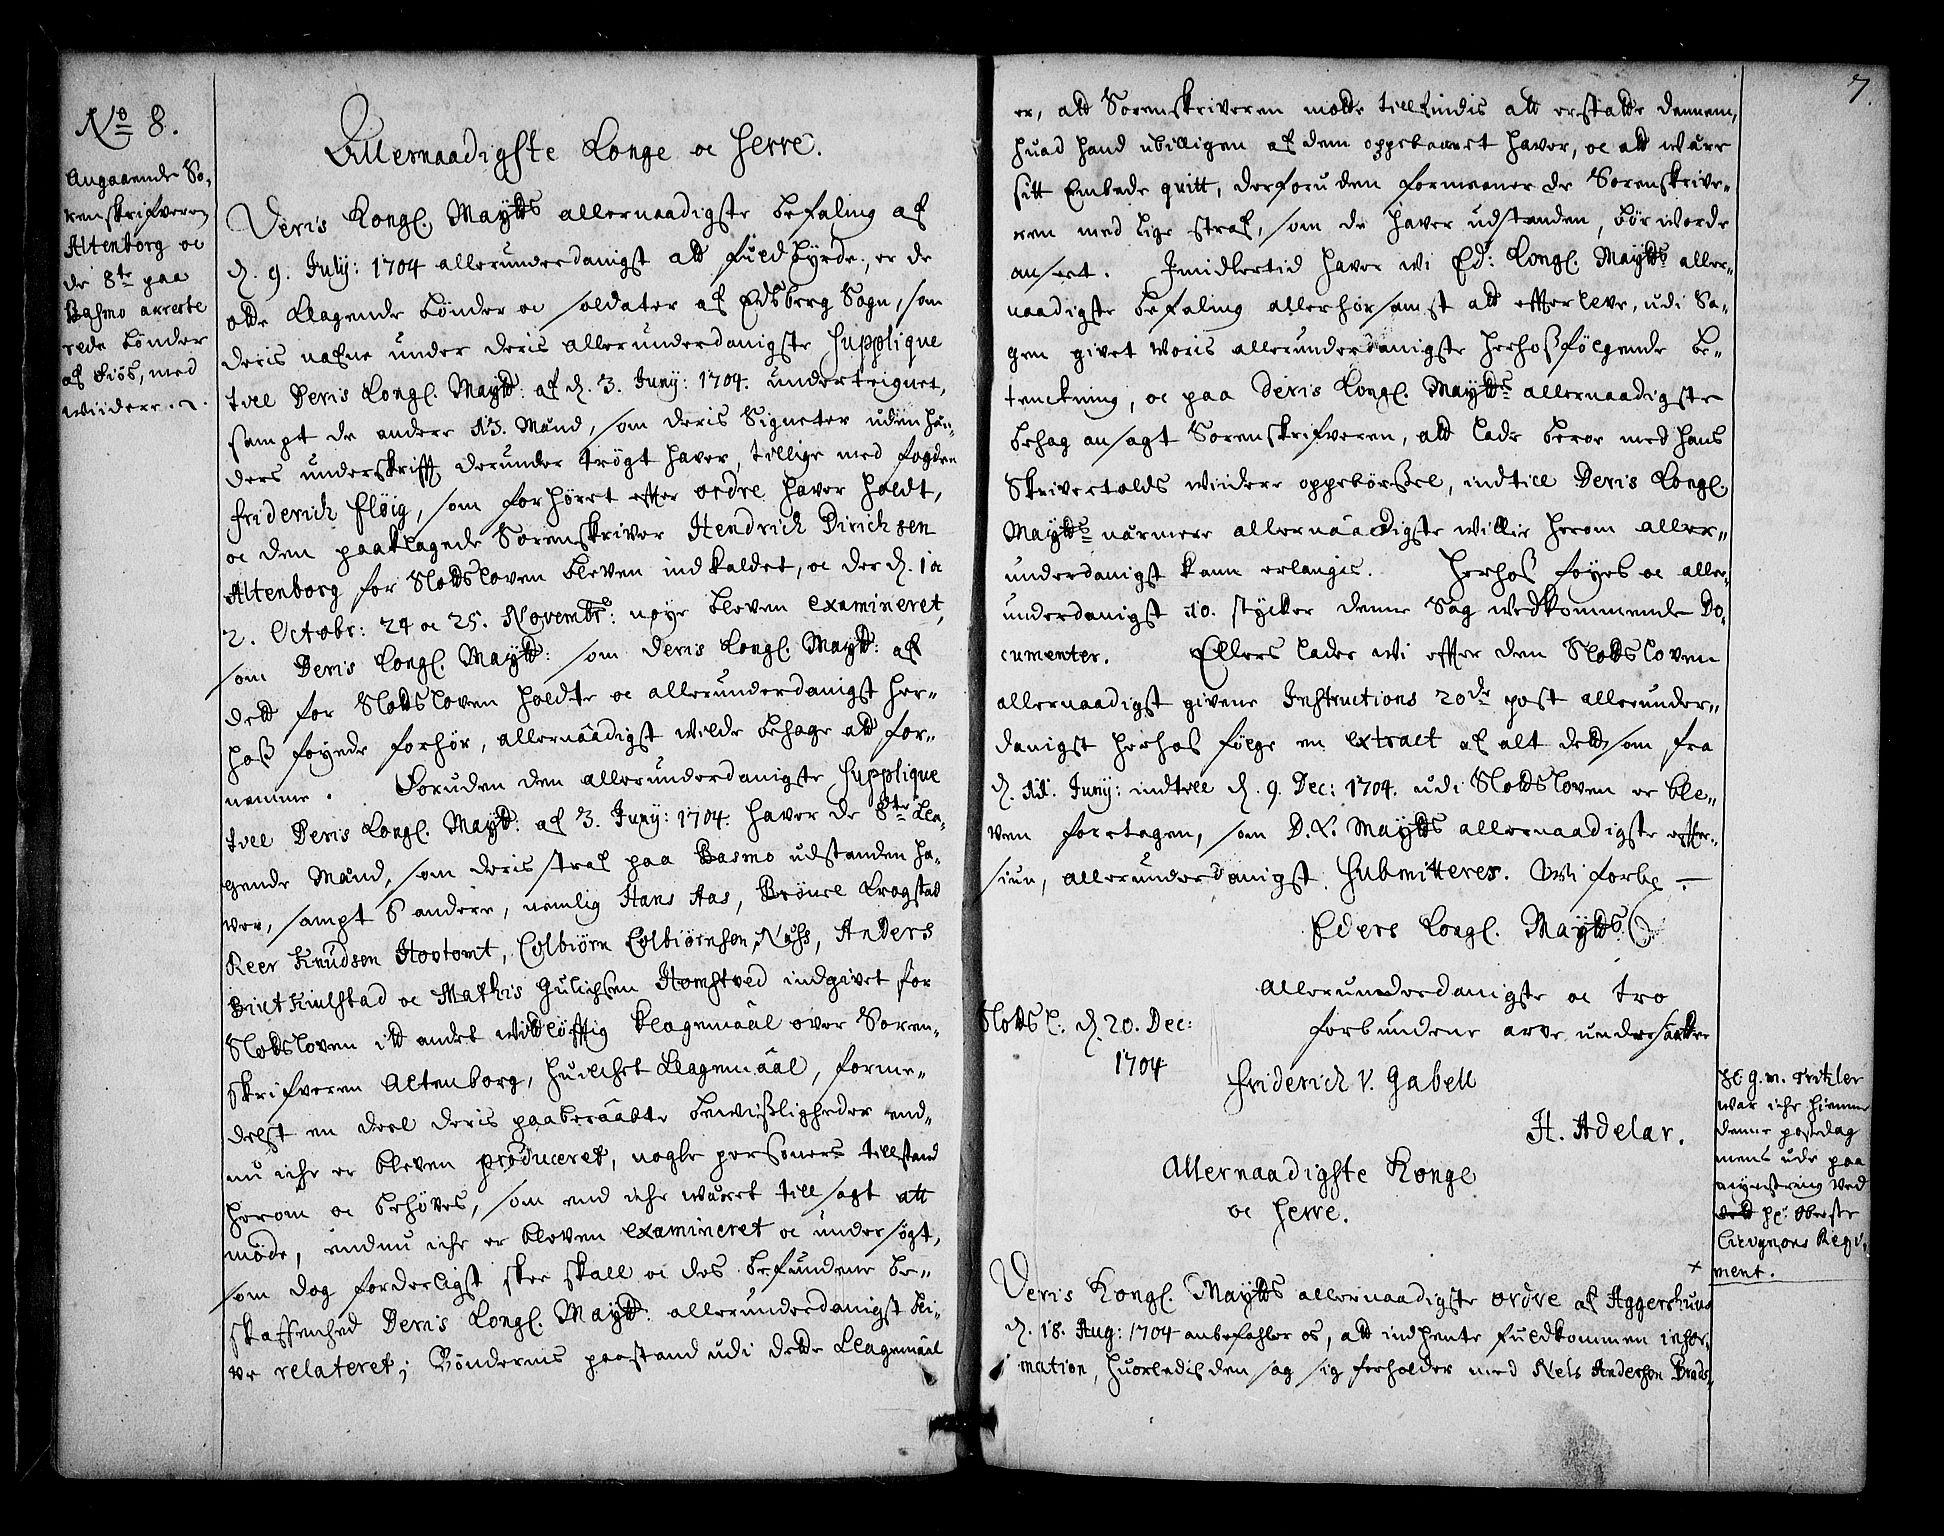 No 8.
Angaaende So-
renskrifveren
Altenborg oc
de 8te paa
Basmo arreste
rede bønder
af Eidsb, med
widere.
Allernaadigste Konge oc Herre.
Deris Kongl. Maytts allernaadigste befaling af
d. 9. July: 1704 allerunderdanigst att fuldbyrde, er de
otte klagende bønder oc soldater af Edsberg Sogn, som
deris nafne under deris allerunderdanigste Supplique
till Deris Kongl. Maytt: af d. 3. Juny: 1704. underteignet,
sampt de andere 13. Mänd, som deris Signeter uden hän-
ders underskrifft derunder trögt haver, tillige med fogden
Friderich Fløig, som forhøret effter ordre haver holdt,
oc den paaklagede Sorenskriver Hendrich Dirichsen
Altenborg for Slottsloven bleven indkaldet, oc der d. 1 a
2. Octobr: 24 oc 25. Novembr: nøye bleven examineret,
som Deris Kongl. Maytt: som Deris Kongl. Maytt: aff
dett for Slottsloven holdte oc allerunderdanigst her-
hoß føyede forhør, allernäädigst wilde behage att for-
nemme. Foruden den allerunderdanigste Supplique
till Deris Kongl. Maytt: af 3. Juny: 1704. haver de 8te kla-
gende Mänd, som deris straf paa Basmo udstanden ha-
ver, sampt 6 andere, nemlig Hans Aas, Brönel Krogstad
Reer Knudsen Hootomt, Colbiörn Colbiørnsen Näß, Anders
Birkkiulstad oc Mathis Gulichsen Homstved indgivet for
Slottsloven itt andet widtløfftig klagemäal over Soren-
skrifveren Altenborg, huilchet klagemäal, forme-
delst en deel deris paaberäabte bewißligheder end-
nu iche er bleven produceret, nogle personers tillstand
herom oc behöves, som end iche wäret tillsagt att
møde, endnu iche er bleven examineret oc undersøgt,
som dog forderligst skee skall oc des befundene be-
skaffenhed Deris Kongl. Maytt: allerunderdanigst bli-
ve relateret; Bøndernis paastand udi dette klagemäal
7.
er, att Sorenskriveren motte tillfindis att erstatte dennem,
huad hand ubilligen af dem oppebaaret haver, oc att være
sitt Embede quitt, desforuden formeener de Sorenskrive-
ren med lige straf, som de haver udstanden, bör worde
anseet. Imidlertid haver wi Ed: Kongl. Maytts aller-
naadigste befaling allerhørsamst att effterleve, udi Sa-
gen givet woris allerunderdanigste herhoßfölgende be-
tenckning, oc paa Deris Kongl. Maytts allernaadigste
behag ansagt Sorenskrifveren, att lade beroe med hans
Skrivertolds widere oppebörßel, indtill Deris Kongl.
Maytts närmere allernäadigste willie herom aller-
underdanigst kann erlangis. Herhos føyes oc aller-
underdanigst 10. stycker denne Sag wedkommende Do-
cumenter. Ellers lader wi effter den Slottsloven
allernaadigst givene Instructions 20de post allerunder-
danigst herhos følge en extract af alt dett som fra
d. 11. Juny: indtill d. 9. Dec: 1704. udi Slottsloven er ble-
ven foretagen, som D. K. Maytts allernaadigste effter-
siun, allerunderdanigst Submitteres. Wi forbl –
Eders Kongl. Maytts
Allerunderdanigste oc tro
forbundene arve undersäätter
Slotts l: d. 20. Dec:
1704
Friderich v. Gabell
H. Adelar.
Hr g. m. Tritzler
war iche hiemme
denne postdag
mens ude paa
mynstring ved
Hr: oberste
Regi-
ment.
Allernaadigste Konge
oc Herre.
Deris Kongl. Maytts allernaadigste ordre af Aggershuus
d. 18. Aug: 1704 anbefahler os, att indhente fuldkommen infor-
mation, huorledis den sag sig forholder med Nels Andersen Brads-